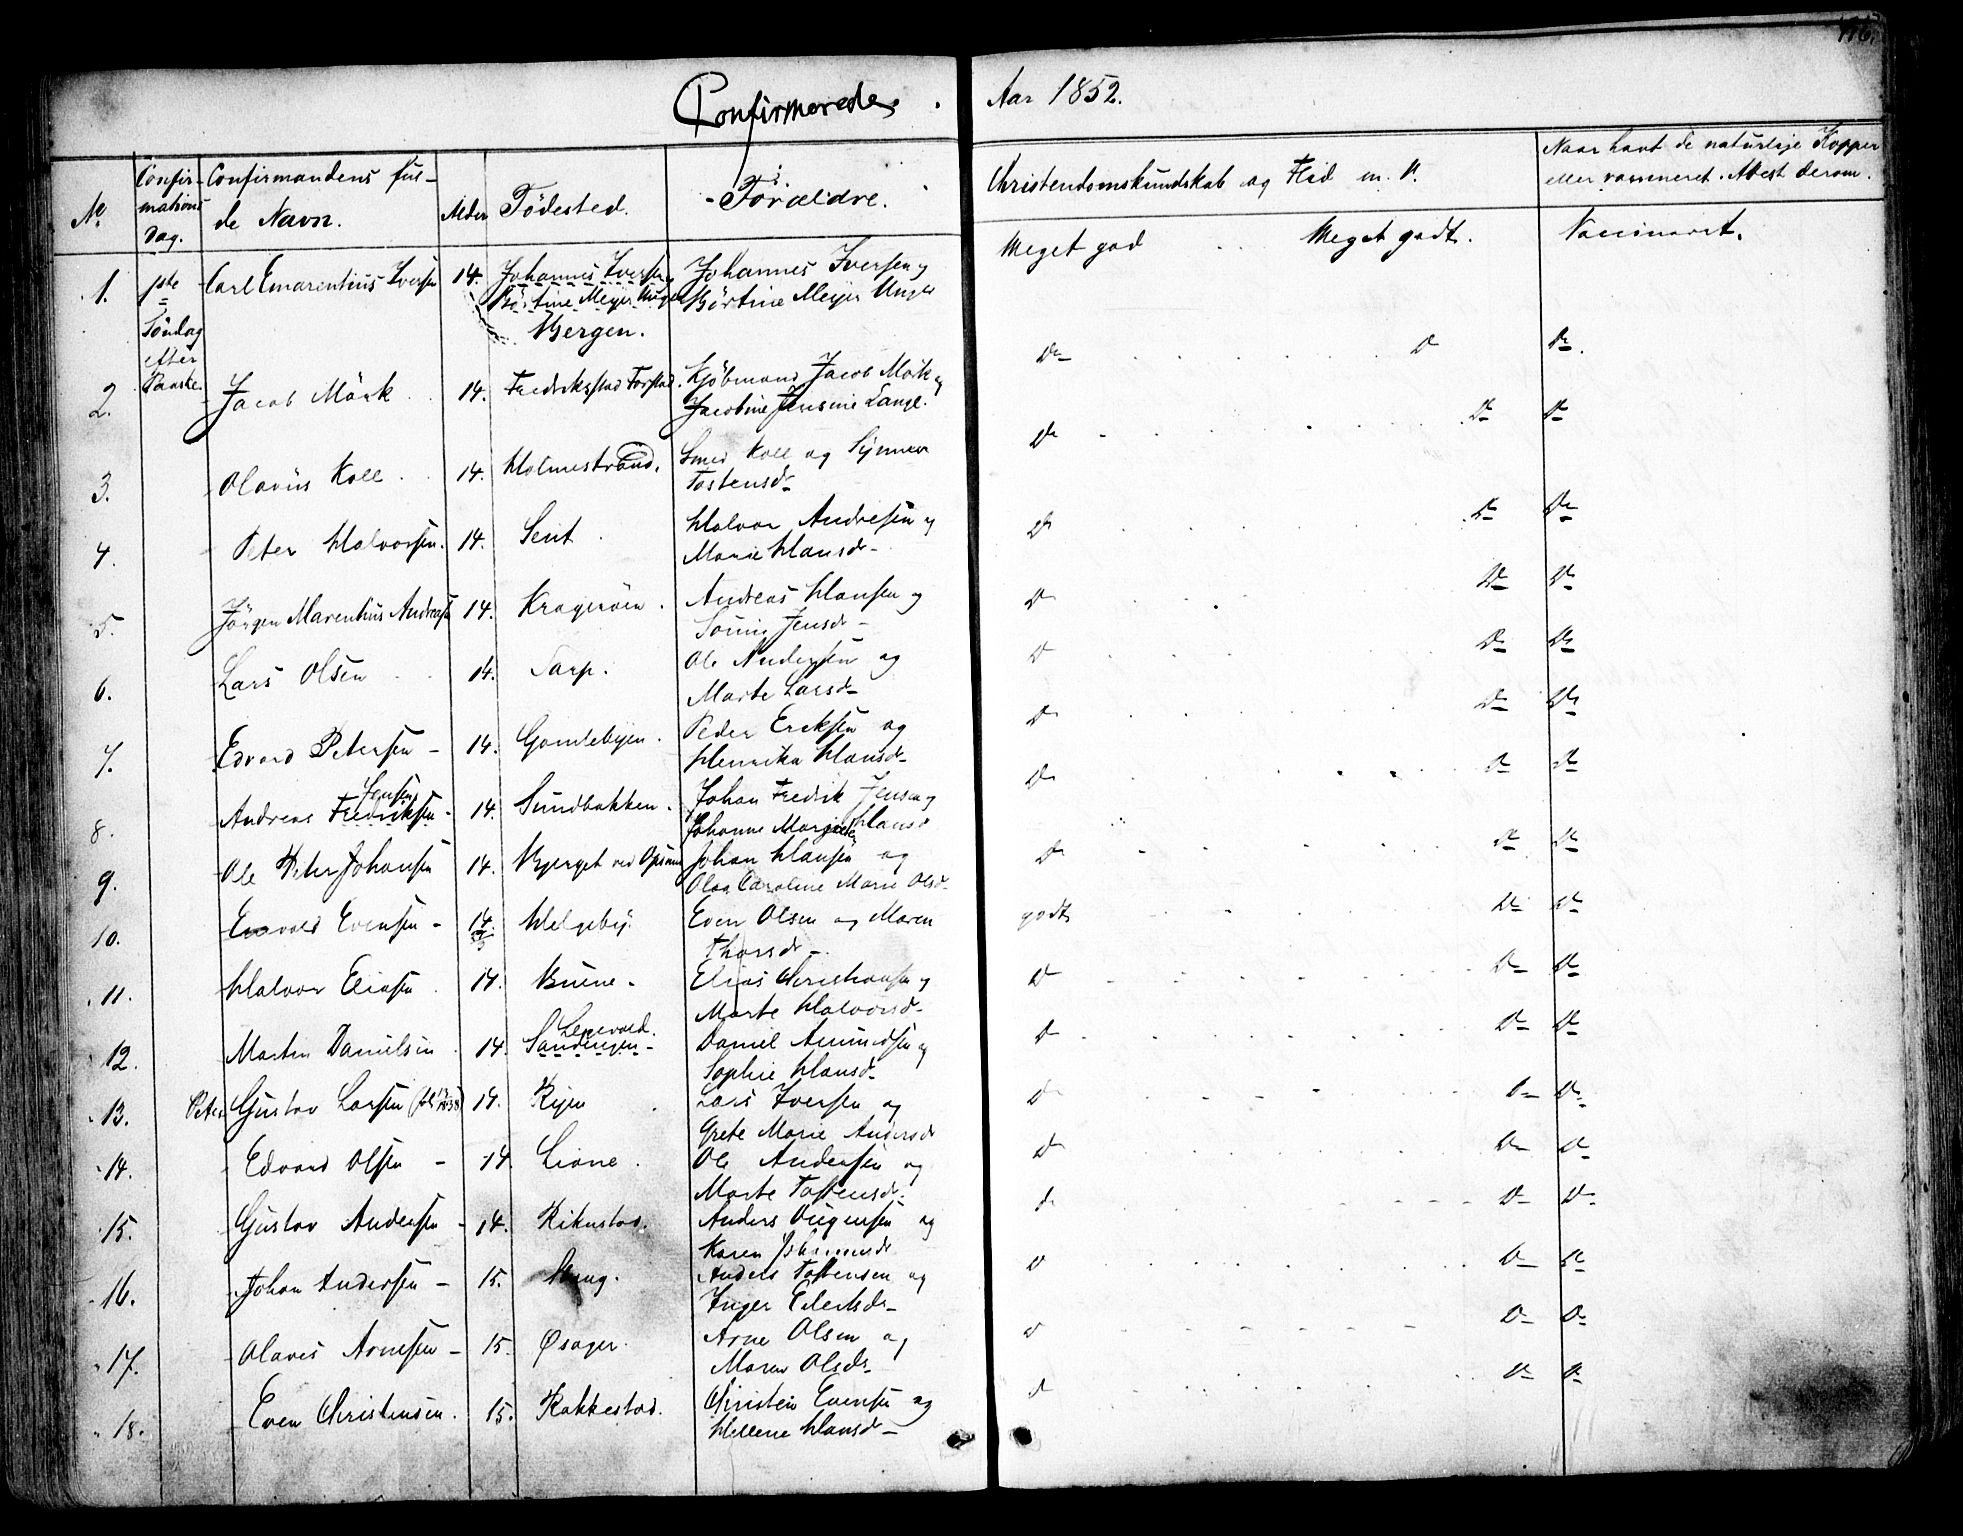 116.
Confirmerede
Aar 1852.
No. Confirmations Dag. Confirmandens fulde Navn. Alder Födested. Forældre. Christendomskundskab og Flid m. V. Naar havt de naturlige Kopper eller vaccineret. Attest derom.
1. 1ste Söndag efter Paaske. Carl Emarentius Iversen 14. Johannes Iversen Börtine Meyer Unger Bergen. Johannes Iversen og Börtine Meyer Unger Meget god Meget godt. Vaccineret.
2. Jacob Mörk 14. Fredrikstad Forstad. Kjöbmand Jacob Mörk og Jacobine Jensine Lange. Do D Do.
3. Olavus Koll 14. Holmestrand. Smed Koll og Tostensdr Do Do Do
4. Peter Halvorsen. 14. Halvor Andresen og Marie Hansdr Do Do Do
5. Jörgen Marenthius Andreasen 14. Kragerøen. Andreas Hansen og Jensdr D Do Do
6. Lars Olsen 14. Tarp. Ole Andersen og Marte Larsdr D Do Do
7. Edvard Petersen 14. Gamlebyen. Peder Eriksen og Henrika Hansdr D Do Do
8. Andreas Fredriksen Jensen 14. Sundbakken. Johan Fredrik Jensen og Johanne Margrete Hansd Do D Do
9. Ole Peter Johansen 14. Bjerget ved Johan Hansen og Olea Caroline Marie Olsd. D Do Do
10. Evensen 14. Helgeby. Even Olsen og Maren Thorsdr godt Do Do
11. Halvor Eliasen 14. Elias Christiansen og Marte Halvorsd. D Do Do
12. Marten Danielsen 14. Sandengen Daniel Amundsen og Sophie Hansd. D Do Do
13. Peter Gustav Larsen 14. Lars Iversen og Grete Marie Andersd D D Do
14. Edvard Olsen 14. Lione. Ole Andersen og Marte Tostensd. D Do Do
15. Gustav Andersen 14. Rikustad. Anders og Karen D D Do
16. Johan Andersen 15. Anders Tostensen og Inger D D Do
17. Olaves Arnesen 15. Øsager. Arne Olsen og Maren Olsdr D D D
18. Even Christensen. 15. Rakkestad. Christen Evensen og Hellene Hansd D D D